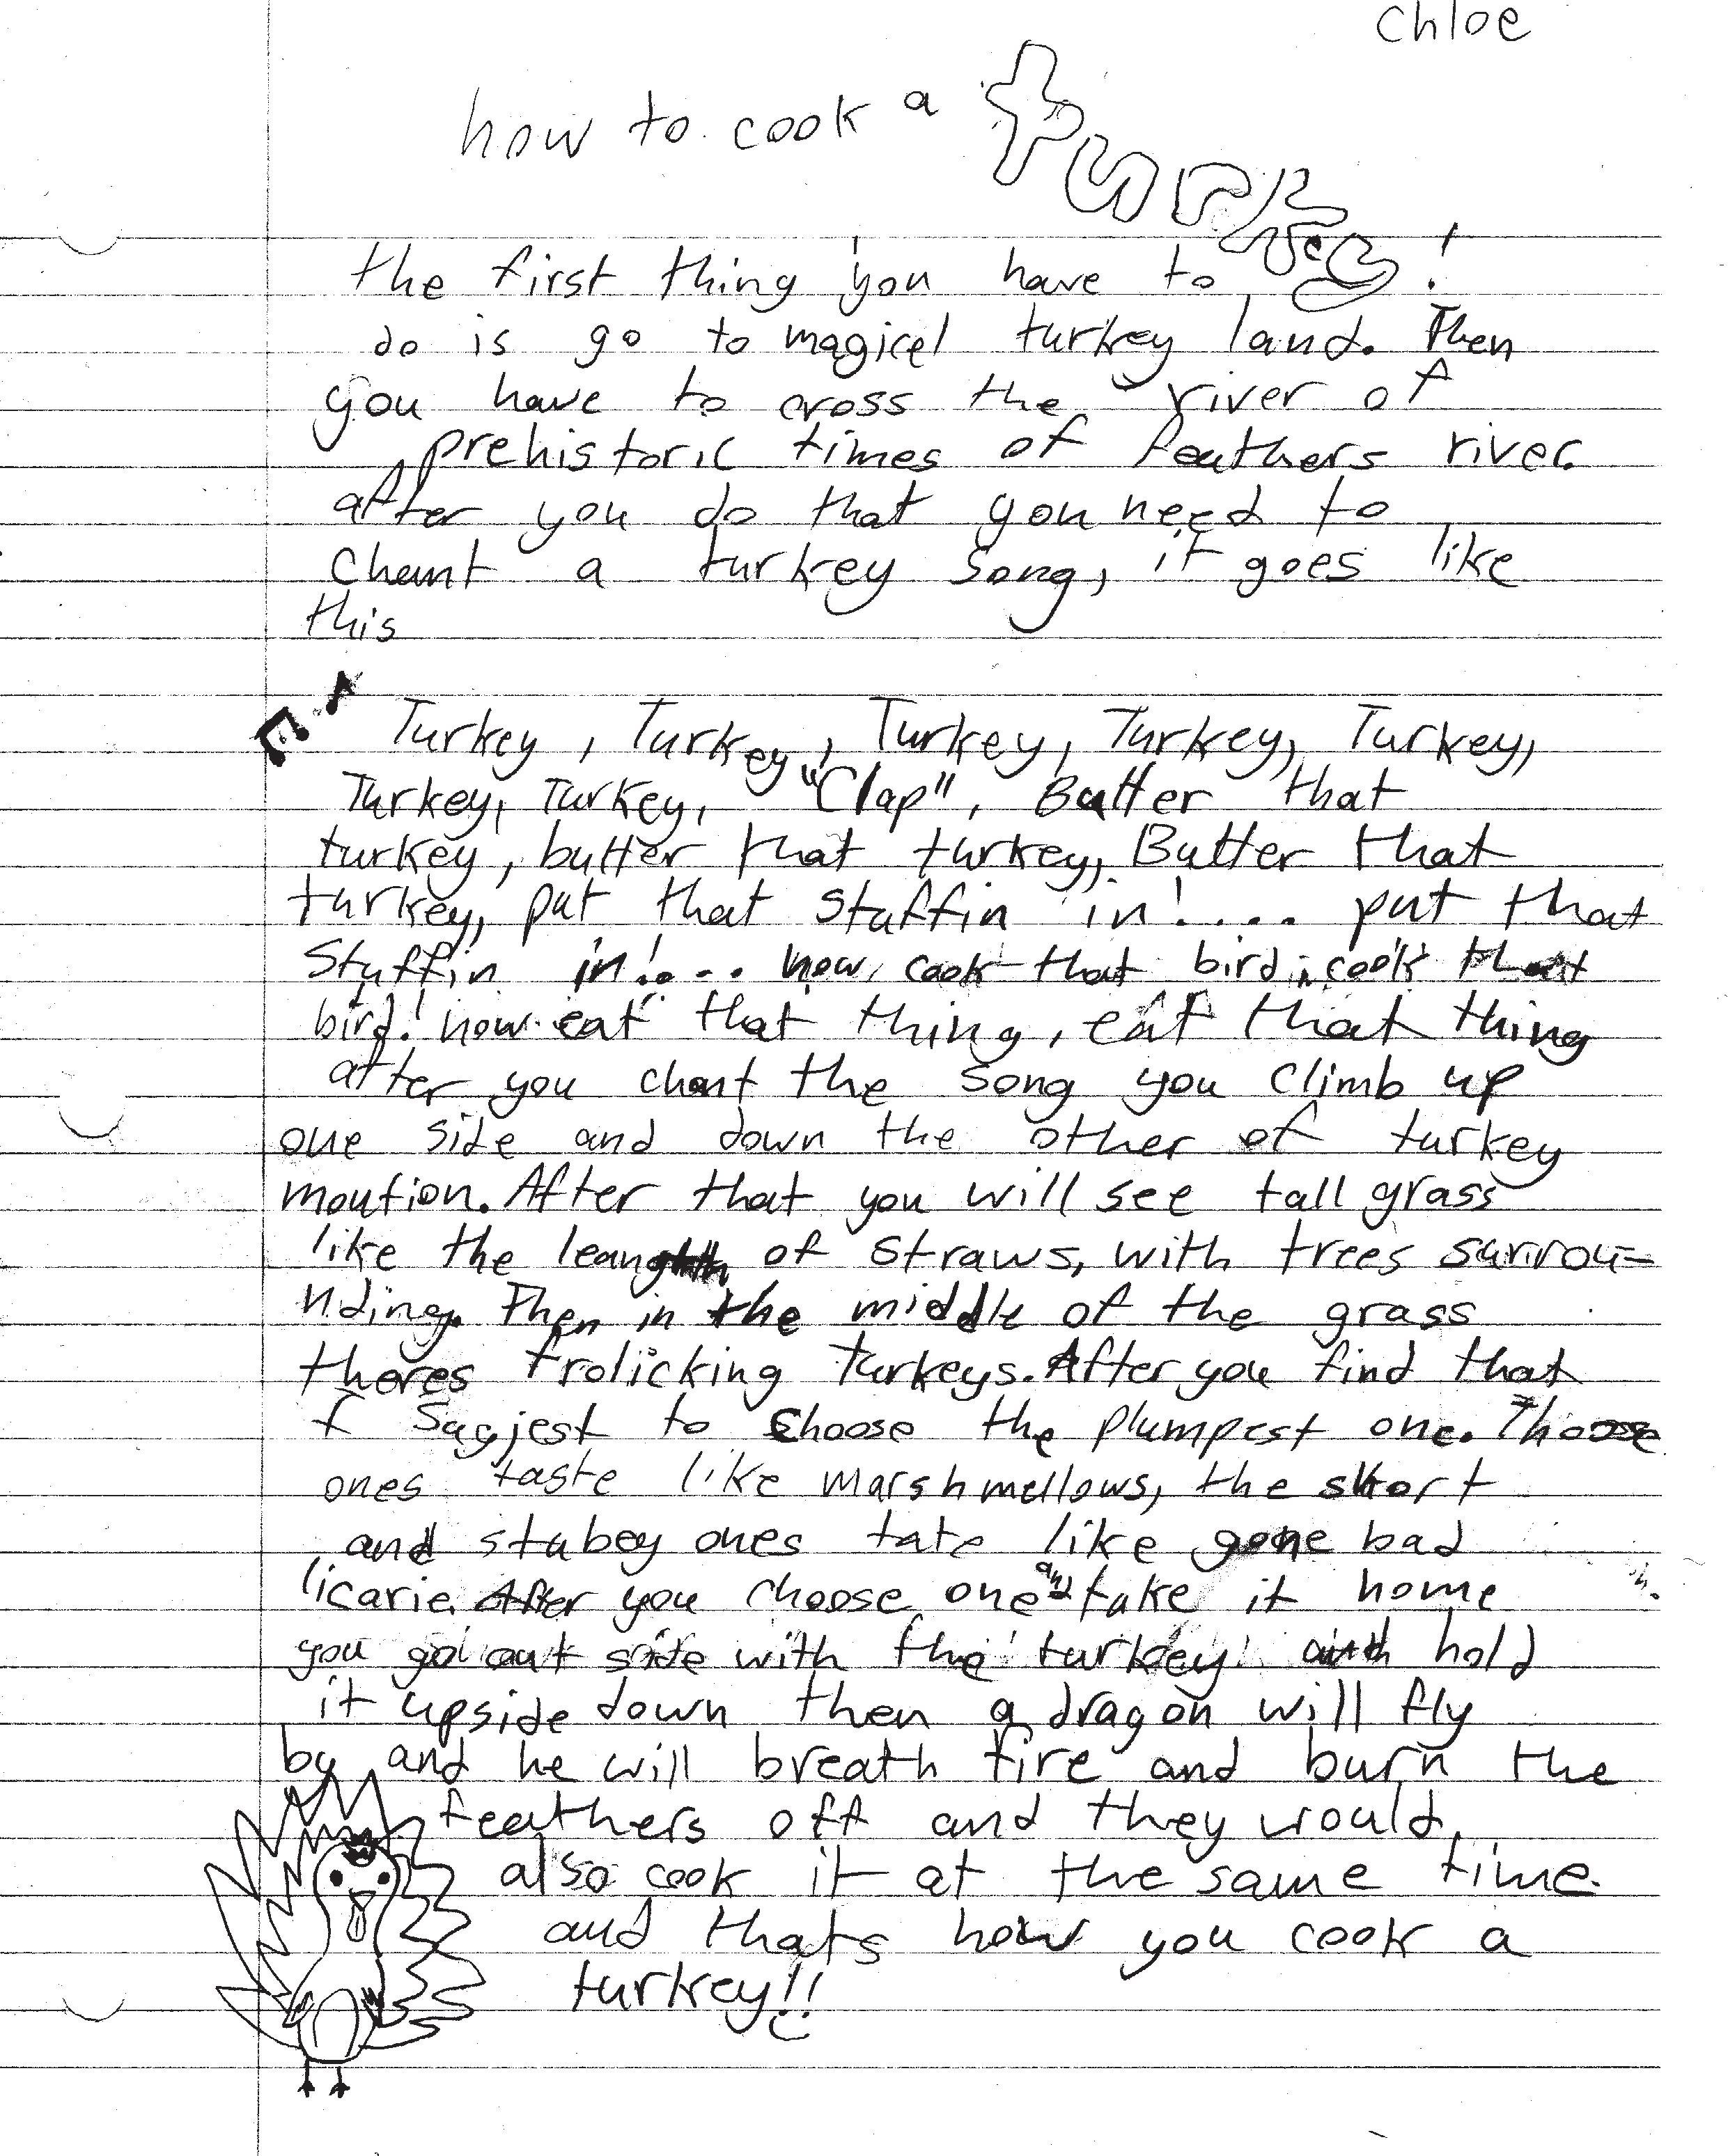 chloe
how to cook a turkey!
the first thing you have to
do is go to magicel turkey land. Then
you have to cross the river of
prehistoric times of feathers river.
after you do that you need to
chant a turkey song, it goes like
this
Turkey, Turkey, Turkey, Turkey, Turkey,
Turkey, Turkey, "Clap", Butter that
turkey, butter that turkey, Butter that
turkey, put that stuffin in!.... put that
stuffin in!... now, cook that bird, cook that
bird! now eat that thing, eat that thing
after you chant the song you climb up
one side and down the other of turkey
moution. After that you will see tall grass
like the leangth of straws, with trees surirou-
nding. Then in the middle of the grass
theres frolicking Turkeys. After you find that
I sugjest to choose the plumpest one. Those
ones taste like marshmellows, the short
and stubey ones tate like gone bad
licarie. After you choose one and take it home
you go out side with the turkey and hold
it upside down then a dragon will fly
by and he will breath fire and burn the
feathers off and they would
also cook it at the same time.
and thats how you cook a
turkey!!